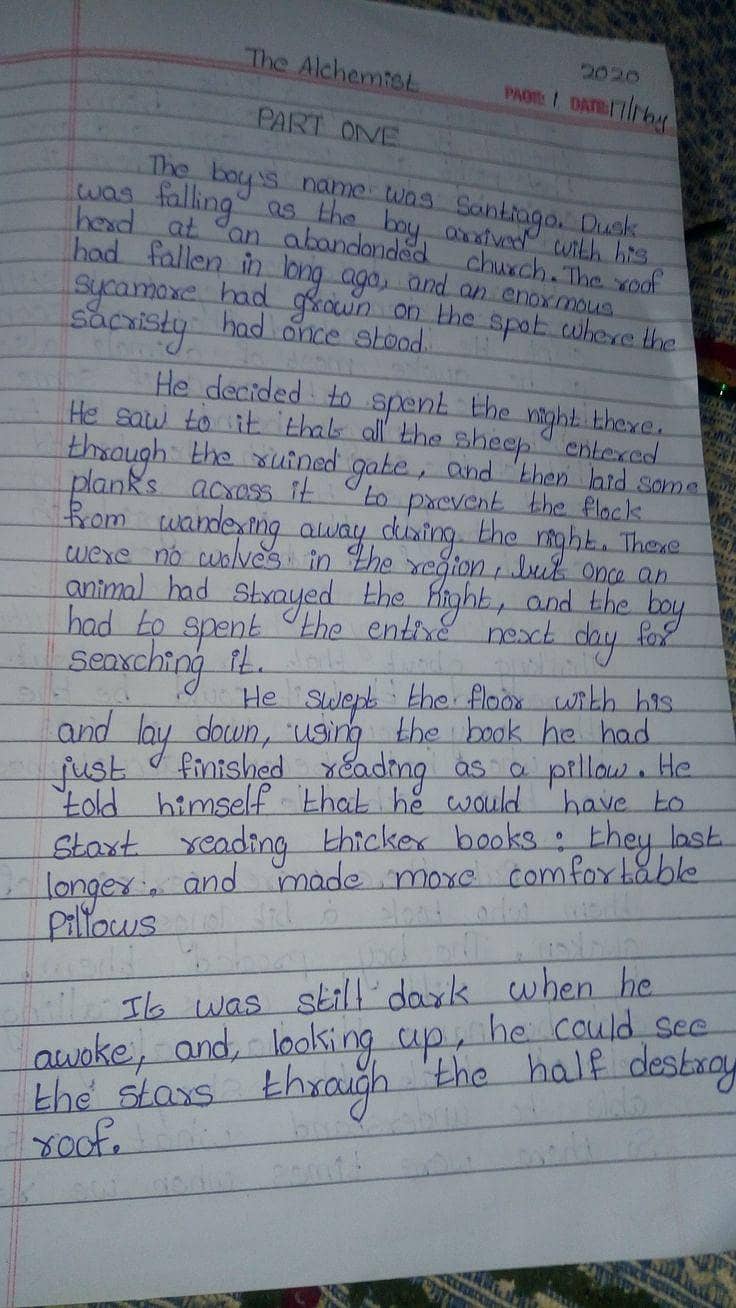 The Alchemist
2020
PAGE: 1 DATE: 17/May
PART ONE
The boy's name was Santiago. Dusk
was falling as the boy arrived with his
herd at an abandonded church. The roof
had fallen in long ago, and an enormous
sycamore had grown on the spot where the
sacristy had once stood.
He decided to spent the night there.
He saw to it that all the sheep entered
through the ruined gate, and then laid some
planks across it to prevent the flock
from wandering away during the night. There
were no wolves in the region, but once an
animal had strayed the night, and the boy
had to spent the entire next day for
searching it.
He swept the floor with his
and lay down, using the book he had
just finished reading as a pillow. He
told himself that he would have to
start reading thicker books: they last
longer, and made more comfortable
Pillows
It was still dark when he
awoke, and, looking up, he could see
the stars through the half destroy
roof.